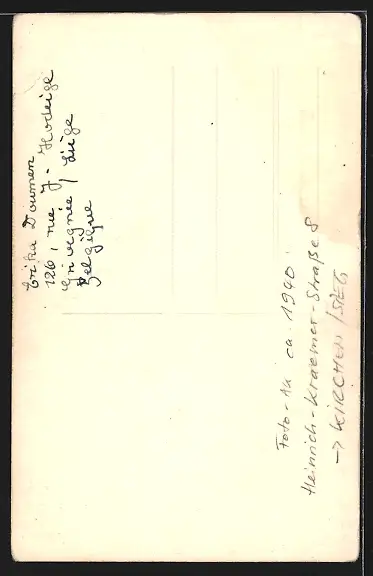 Erika Doumen
126, rue J. Hodeige
Grivegnée / Liège
Belgique
Foto-AK ca. 1940
Heinrich-Kraemer-Straße 8
→ KIRCHEN/SIEG